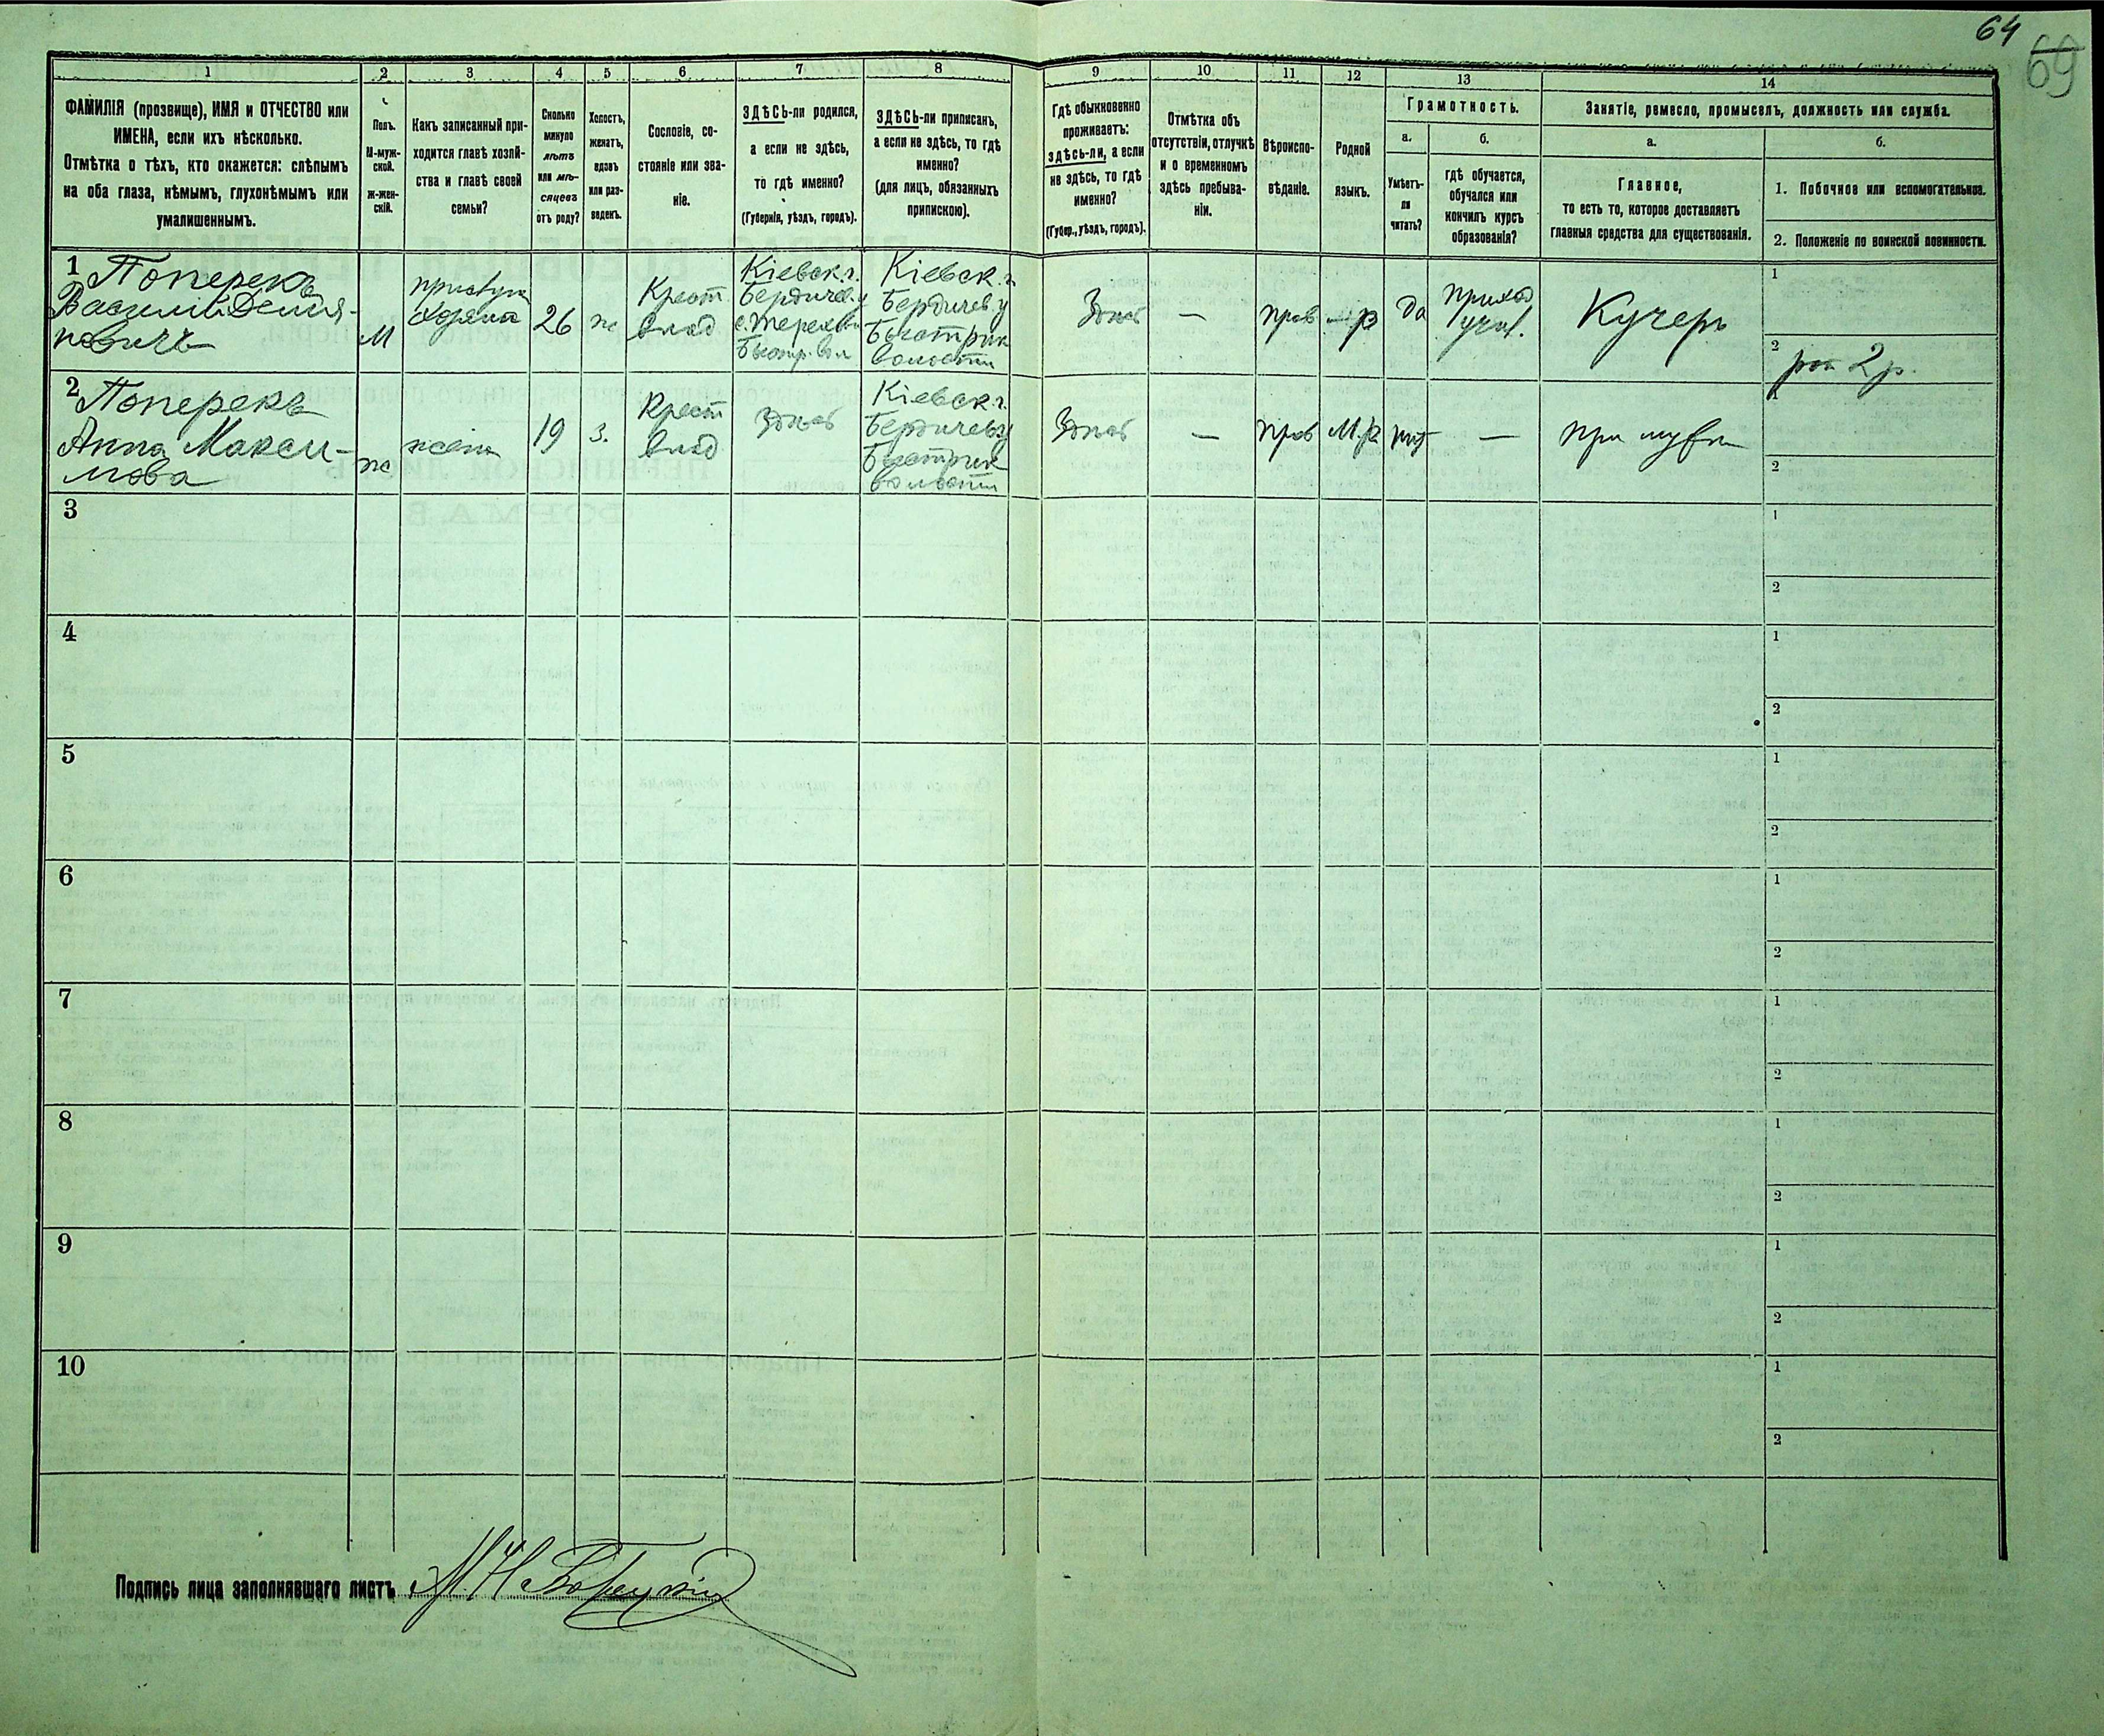 64
69
1
2
3
4
5
6
7
8
9
10
11
12
13
14
ФАМИЛІЯ (прозвище), ИМЯ и ОТЧЕСТВО или
ИМЕНА, если ихъ нѣсколько.
Отмѣтка о тѣхъ, кто окажется: слѣпымъ
на оба глаза, нѣмымъ, глухонѣмымъ или
умалишеннымъ.
Полъ.
М-муж-
ской.
ж-жен-
скій.
Какъ записанный при-
ходится главѣ хозяй-
ства и главѣ своей
семьи?
Сколько
минуло
лѣтъ
или мѣ-
сяцевъ
отъ роду?
Холостъ,
женатъ,
вдовъ
или раз-
веденъ.
Сословіе, со-
стояніе или зва-
ніе.
ЗДѢСЬ-ли родился,
а если не здѣсь,
то гдѣ именно?
(Губернія, уѣздъ, городъ).
ЗДѢСЬ-ли приписанъ,
а если не здѣсь, то гдѣ
именно?
(для лицъ, обязанныхъ
припискою).
Гдѣ обыкновенно
проживаетъ:
здѣсь-ли, а если
не здѣсь, то гдѣ
именно?
(Губер., уѣздъ, городъ).
Отмѣтка объ
отсутствіи, отлучкѣ
и о временномъ
здѣсь пребыва-
ніи.
Вѣроиспо-
вѣданіе.
Родной
языкъ.
Грамотность.
а.
Умѣетъ-
ли
читать?
б.
гдѣ обучается,
обучался или
кончилъ курсъ
образованія?
Занятіе, ремесло, промыселъ, должность или служба.
а.
Главное,
то есть то, которое доставляетъ
главныя средства для существованія.
б.
1. Побочное или вспомогательное.
2. Положеніе по воинской повинности.
1
Поперекъ
Василій Демія-
новичъ
М
прислуга
хозяина
26
ж
Крест
влад
Кіевск г.
Бердичев. у
Быстр. вол
Кіевск. г.
Бердичев. у
Быстрик
волости
Здѣсь
—
прав
да
приход
учил.
Кучеръ
1
2
рат 2 р.
2
Поперекъ
Анна Макси-
мова
ж
жена
19
з.
Крест
влад
Здѣсь
Кіевск. г.
Бердичев у
Быстрик
волости
Здѣсь
—
прав
М.р
нѣт
—
при мужѣ
1
2
3
1
2
4
1
2
5
1
2
6
1
2
7
1
2
8
1
2
9
1
2
10
1
2
Подпись лица заполнявшаго листъ